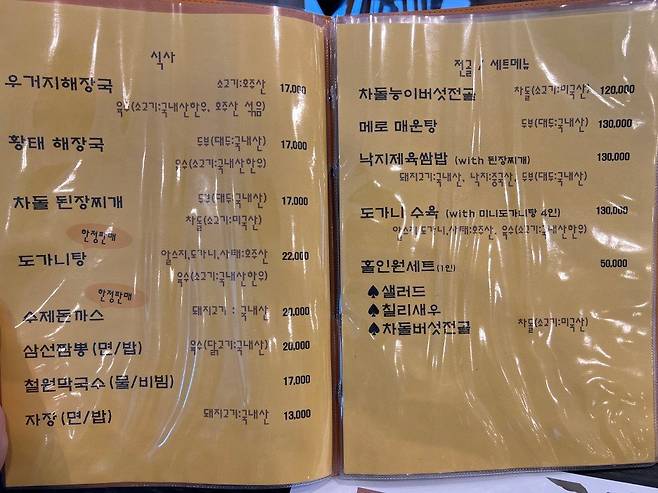 식사
우거지해장국 소고기:호주산 17,000
육수(소고기:국내산한우, 호주산 섞음)
황태 해장국 두부(대두:국내산) 17,000
육수(소고기:국내산한우)
차돌 된장찌개 두부(대두:국내산) 17,000
차돌(소고기:미국산)
한정판매
도가니탕 알스지,도가니,사태:호주산 22,000
육수(소고기:국내산한우)
한정판매
수제돈까스 돼지고기 : 국내산 20,000
삼선짬뽕 (면/밥) 육수(닭고기:국내산) 20,000
철원막국수 (물/비빔) 17,000
자장 (면/밥) 돼지고기:국내산 13,000
전골 / 세트메뉴
차돌능이버섯전골 차돌(소고기:미국산) 120,000
메로 매운탕 두부(대두:국내산) 130,000
낙지제육쌈밥 (with 된장찌개) 130,000
돼지고기:국내산, 낙지:중국산, 두부(대두:국내산)
도가니 수육 (with 미니도가니탕 4인) 130,000
알스지,도가니,사태:호주산, 육수(소고기:국내산한우)
홀인원세트 (1인) 50,000
♠ 샐러드
♠ 칠리새우
♠ 차돌버섯전골 차돌(소고기:미국산)